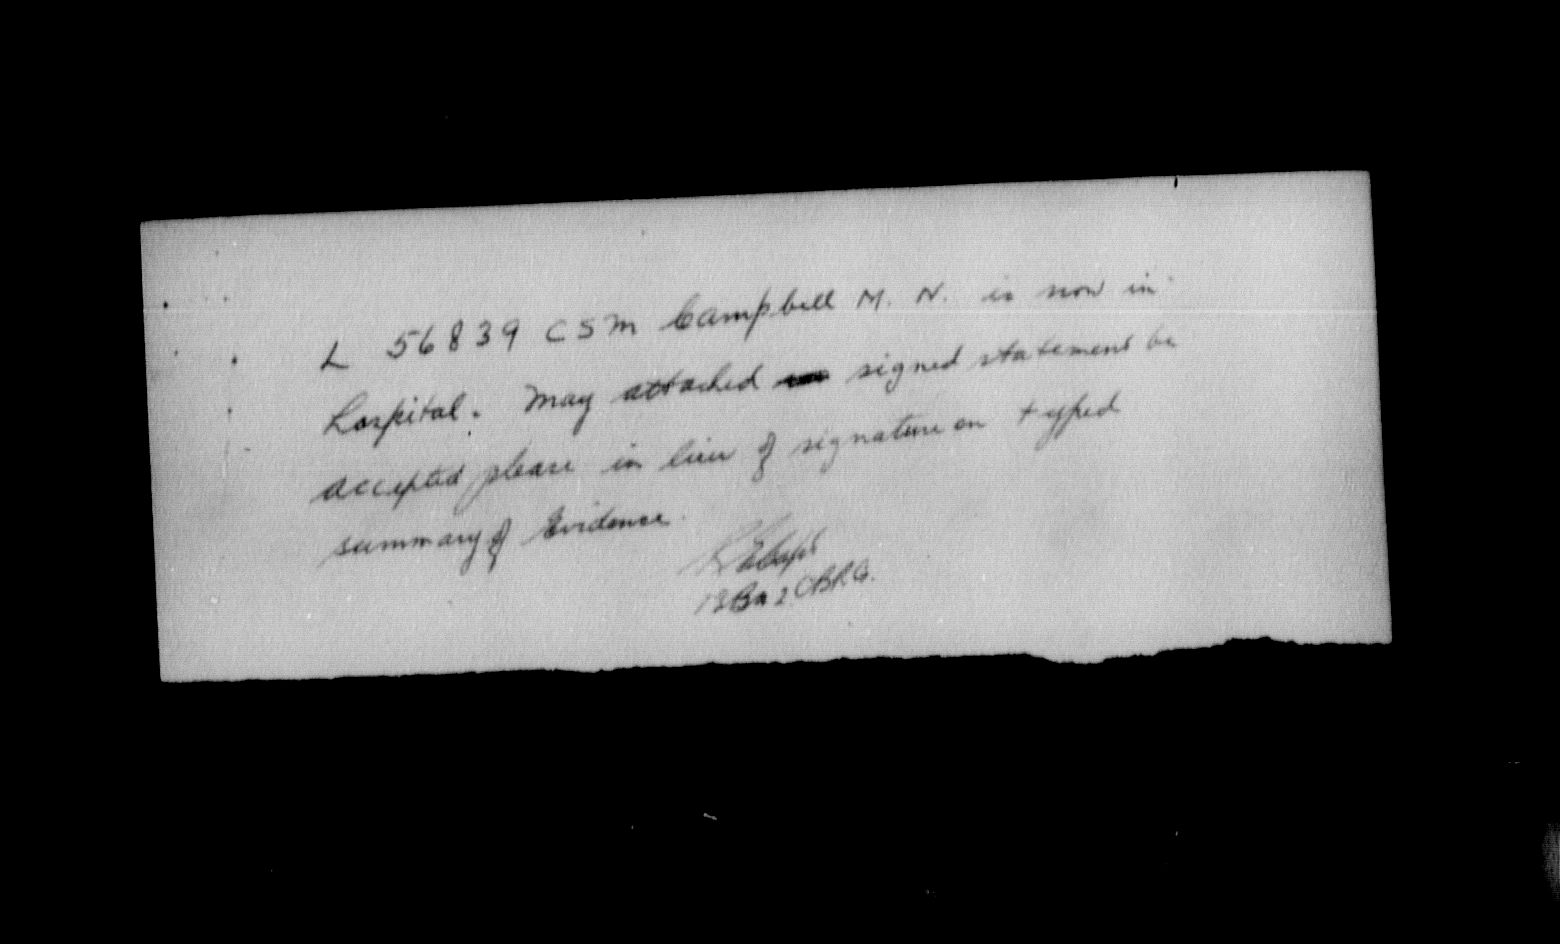 L 56839 CSM Campbell M. N. is now in
hospital. May attached signed statement be
accepted please in lieu of signature on typed
summary of Evidence.
Capt
13 Bn 2 CBRG.